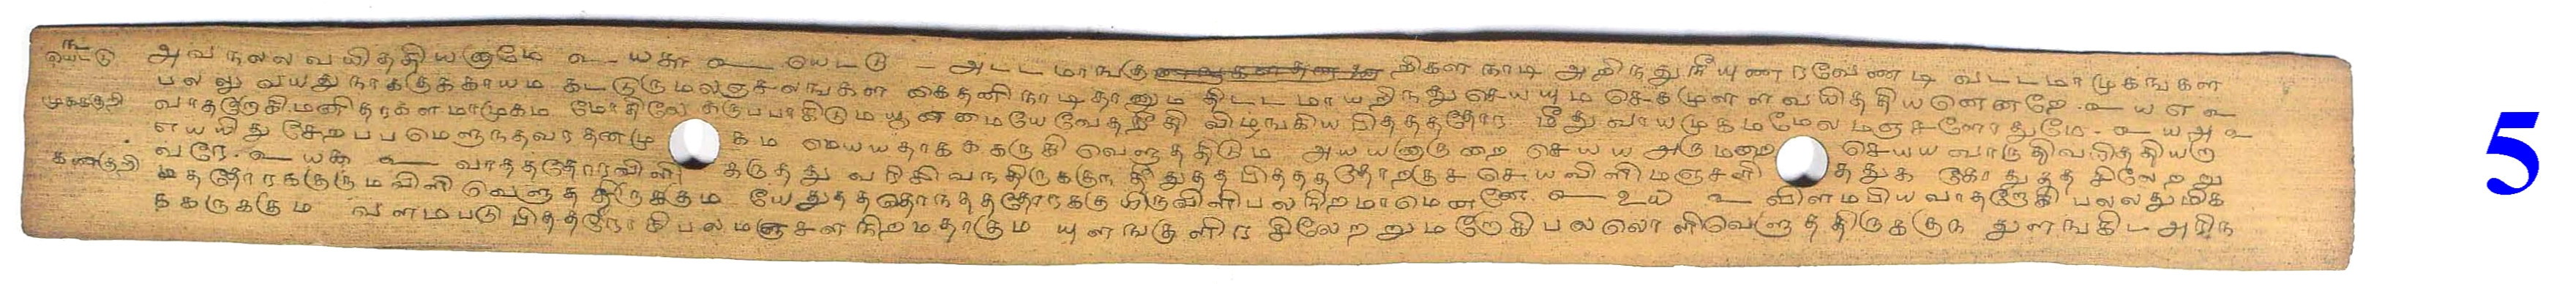 அவ நலல வயிததியனுமே உ யகூ உ யெடடு — அடடமாஙகு றிகள நாடி அறிநதுநீயுணரவேணடி வடடமாமுகஙகள
பலலு வயதுநாககுககாயம கடடுருமலஞசலஙகள கைதனிநாடிதானும திடடமாயறிநதுசெயயும செகமுளள வயிததியனெனறே. உ யஎ உ
முகககுறி வாதறேகிமனிதரகள மாமுகம மோதிலே கருபபாகிடும யூனமையே வேதநீதி விழஙகிய பிதததோர மீதுவாயமுகமமேல மஞசளோதுமே. உ யஅ உ
எயயிது சேறபபமெளுநதவரதனமு கம மெயயதாகககருகி வெளுததிடும அயயனுருறை செயய அருமறை செயய வாருதிவயிததியற
கணகுறி வரே. உ யகூ உ வாதததோரவிளி கருதது வரிகிவநதிருககுந தீதுதத பிதததோறகுச செயவிளிமஞசளி ததுக கோதுதத சிலேறறு
மததோரககுருமவிளி வெளுததிருககும யேதுதததொநதததோரககு யிருவிளிபலநிறமாமெனனே. உ உய உ விளமபிய வாதறேகி பலலதுமிக
ககருககும வளமபடு பிததறோகிபலமஞசள நிறமதாகும யுளஙகுளிர சிலேறறுமறேகிபலலொளிவெளுததிருககுந துளஙகிட அரிந